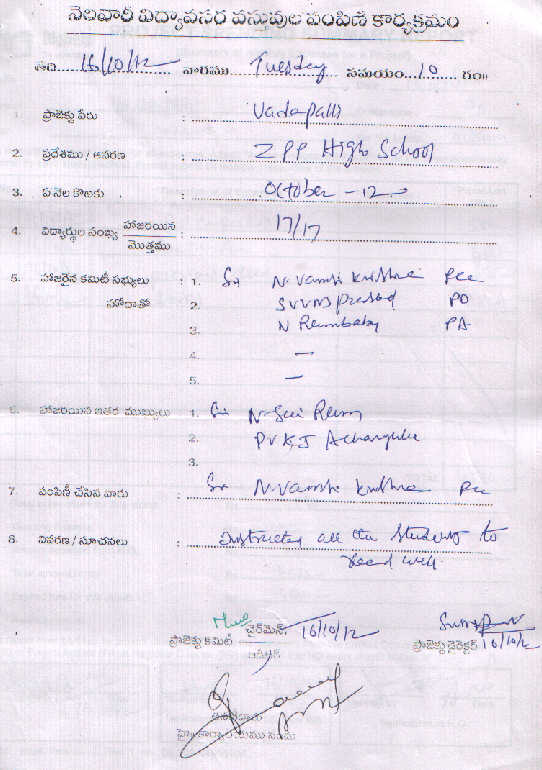 నెలవారీ విద్యావసర వస్తువుల పంపిణీ కార్యక్రమం
తేది 16/10/12 వారము Tuesday సమయం 10 గం॥
1. ప్రాజెక్టు పేరు : Vadapalli
2. ప్రదేశము / ఆవరణ : ZPP High School
3. ఏ నెల కొఱకు : October - 12
4. విద్యార్థుల సంఖ్య హాజరయిన : 17/17
మొత్తము
5. హాజరైన కమిటీ సభ్యులు : 1. Sri N. Vamshi Krishna PCC
హోదాతో 2. SVVNS Prasad PO
3. N Rambabu PA
4. —
5. —
6. హాజరయిన ఇతర ముఖ్యులు 1. Sri N. Sai Ram
2. PVKJ
3.
7. పంపిణీ చేసిన వారు : Sri N. Vamshi Krishna PCC
8. వివరణ / సూచనలు : Instructed all the students to
read well.
ప్రాజెక్టు కమిటీ చైర్‌మెన్ 16/10/12 ప్రాజెక్టు డైరెక్టర్ 16/10/12